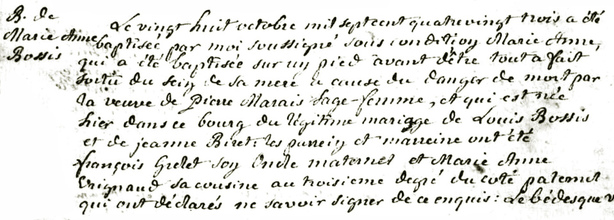 B. de
Marie Anne
Bossis
Le vingt huit octobre mil septcent quatrevingt trois a été
baptisée par moi soussigné sous condition Marie Anne,
qui a été baptisée sur un pied avant d'être tout a fait
sortie du sein de sa mere a cause du danger de mort par
la veuve de Pierre Marais sage-femme, et qui est née
hier dans ce bourg du légitime mariage de Louis Bossis
et de jeanne Biret: les parrein et marreine ont été
françois Grelet son Oncle maternel et Marie Anne
Vrignaud sa cousine au troisieme degré du coté paternel
qui ont déclarés ne savoir signer de ce enquis: Lebédesque